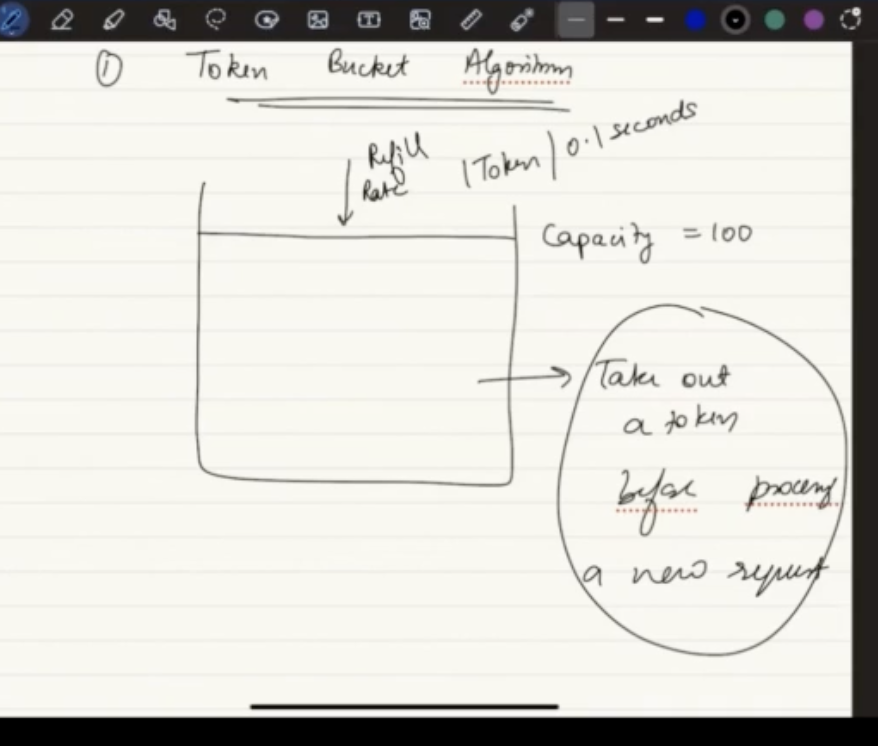 ① Token Bucket Algorithm
Refill
Rate
1 Token / 0.1 seconds
Capacity = 100
Take out
a token
before processing
a new request